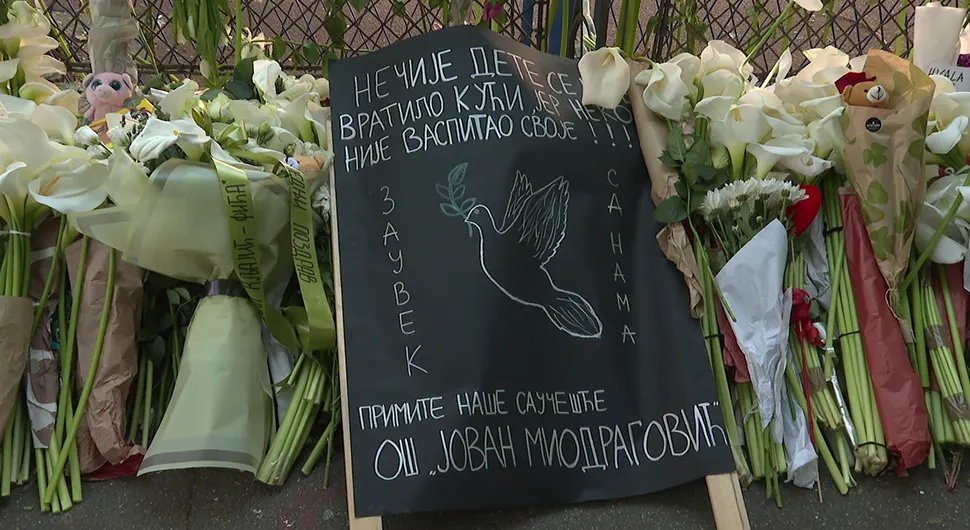 НЕЧИЈЕ ДЕТЕ СЕ
ВРАТИЛО КУЋИ ЈЕР НЕКО
НИЈЕ ВАСПИТАО СВОЈЕ !!!
ЗАУВЕК
СА НАМА
ПРИМИТЕ НАШЕ САУЧЕШЋЕ
ОШ „ЈОВАН МИОДРАГОВИЋ"
HVALA